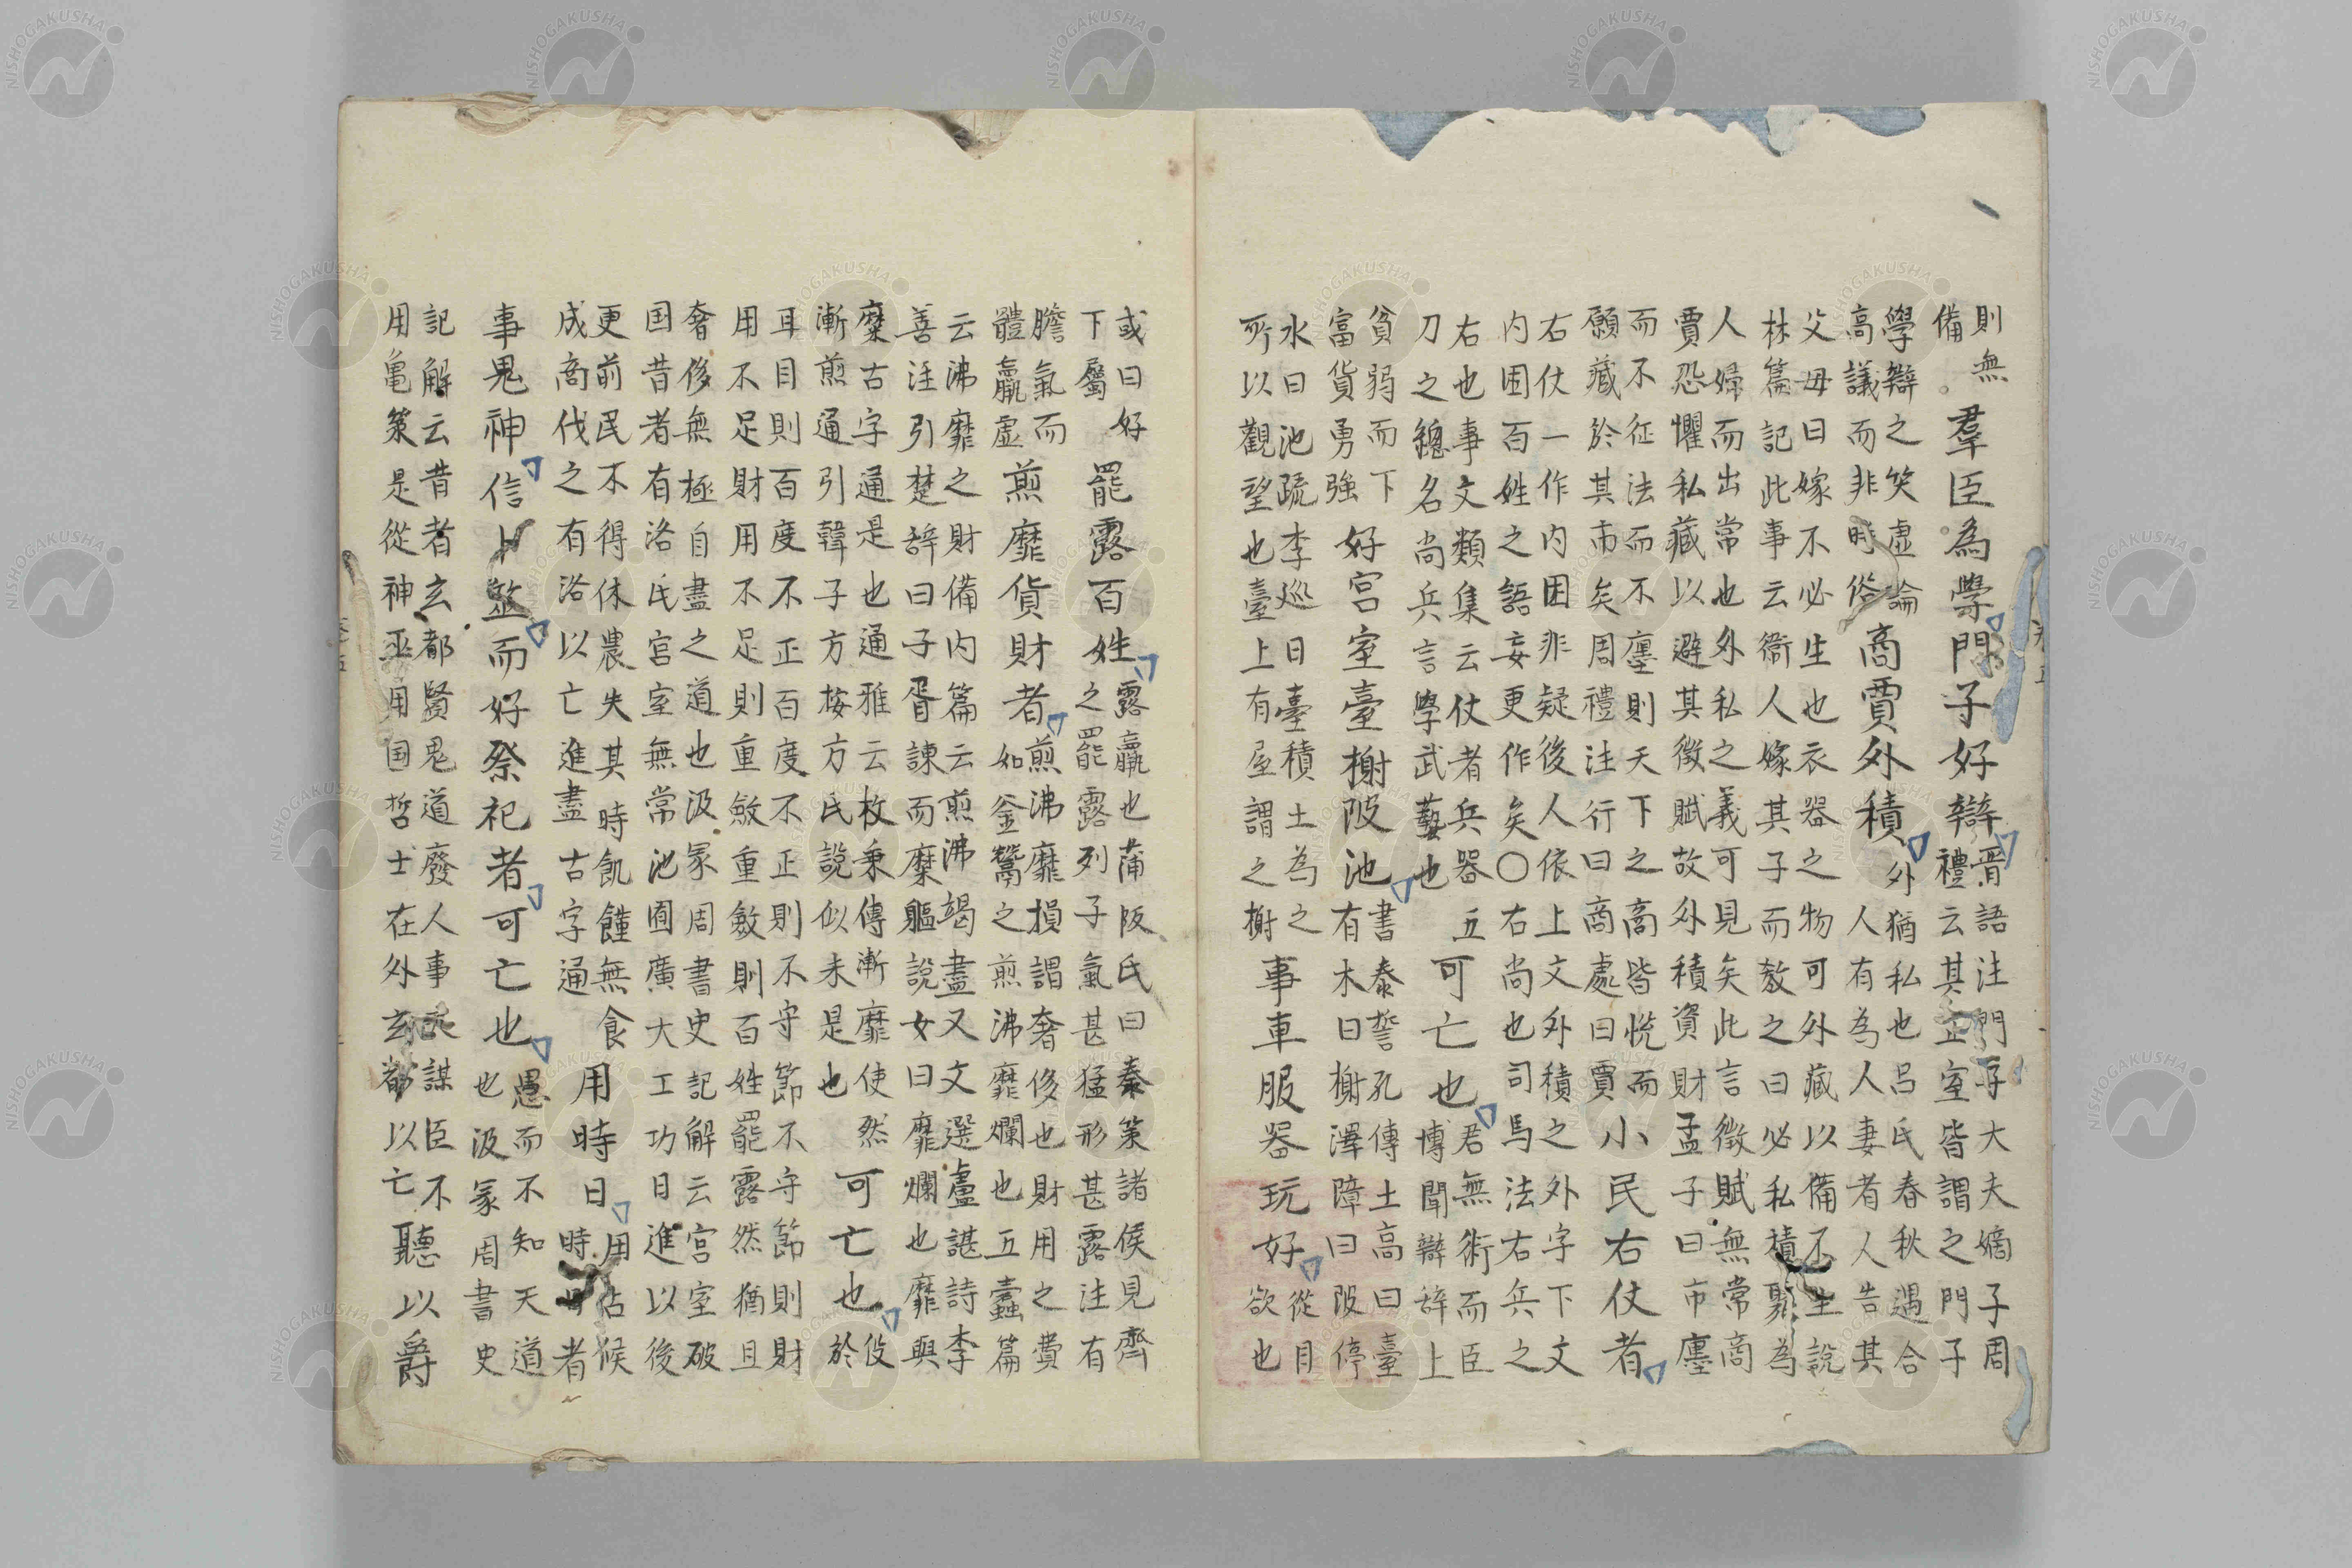 則無
備。群臣為學門子好辯晋語注門子大夫嫡子周
禮云其正室皆謂之門子
學辯之笑虚論
高議而非時俗商賈外積外猶私也呂氏春秋遇合
人有為人妻者人告其
父母曰嫁不必生也衣器之物可外藏以備不生說
林篇記此事云衞人嫁其子而教之曰必私積聚為
人婦而出常也外私之義可見矣此言徴賦無常商
賈恐懼私藏以避其徴賦故外積資財孟子曰市廛
而不征法而不廛則天下之商皆悦而
願藏於其市矣周禮注行曰商處曰賈小民右仗者
右仗一作内困非疑後人依上文外積之外字下文
内困百姓之語妄更作矣〇右尚也司馬法右兵之
右也事文類集云仗者兵器五
刀之緫名尚兵言學武藝也可亡也君無術而臣
博聞辯辞上
貧弱而下
富貨勇強好宮室臺榭陂池書泰誓孔傳土高曰臺
有木曰榭澤障曰陂停
水曰池䟽李巡曰臺積土為之
所以觀望也臺上有屋謂之榭事車服器玩好從目
欲也
或曰好
下屬罷露百姓露羸也蒲阪氏曰秦策諸侯見齊
之罷露列子氣甚猛形甚露注有
膽氣而
體羸虚煎靡貨財者煎沸靡損謂奢侈也財用之費
如釜鬵之煎沸靡爛也五蠹篇
云沸靡之財備内篇云煎沸竭盡又文選盧諶詩李
善注引楚辞曰子胥諫而麋軀說女曰靡爛也靡與
麋古字通是也通雅云枚乗傳漸靡使然
漸煎通引韓子方桉方氏說似未是也可亡也伇
於
耳目則百度不正百度不正則不守節不守節則財
用不足財用不足則重斂重斂則百姓罷露然猶且
奢侈無極自盡之道也汲冢周書史記解云宮室破
国昔者有洛氏宮室無常池囿廣大工功日進以後
更前民不得休農失其時飢饉無食
成商伐之有洛以亡進盡古字通用時日用佔候
時日者
事鬼神信卜筮而好祭祀者可亡也愚而不知天道
也汲冢周書史
記解云昔者玄都賢鬼道廢人事天謀臣不
用亀策是從神巫用国哲士在外玄都以亡聽以爵